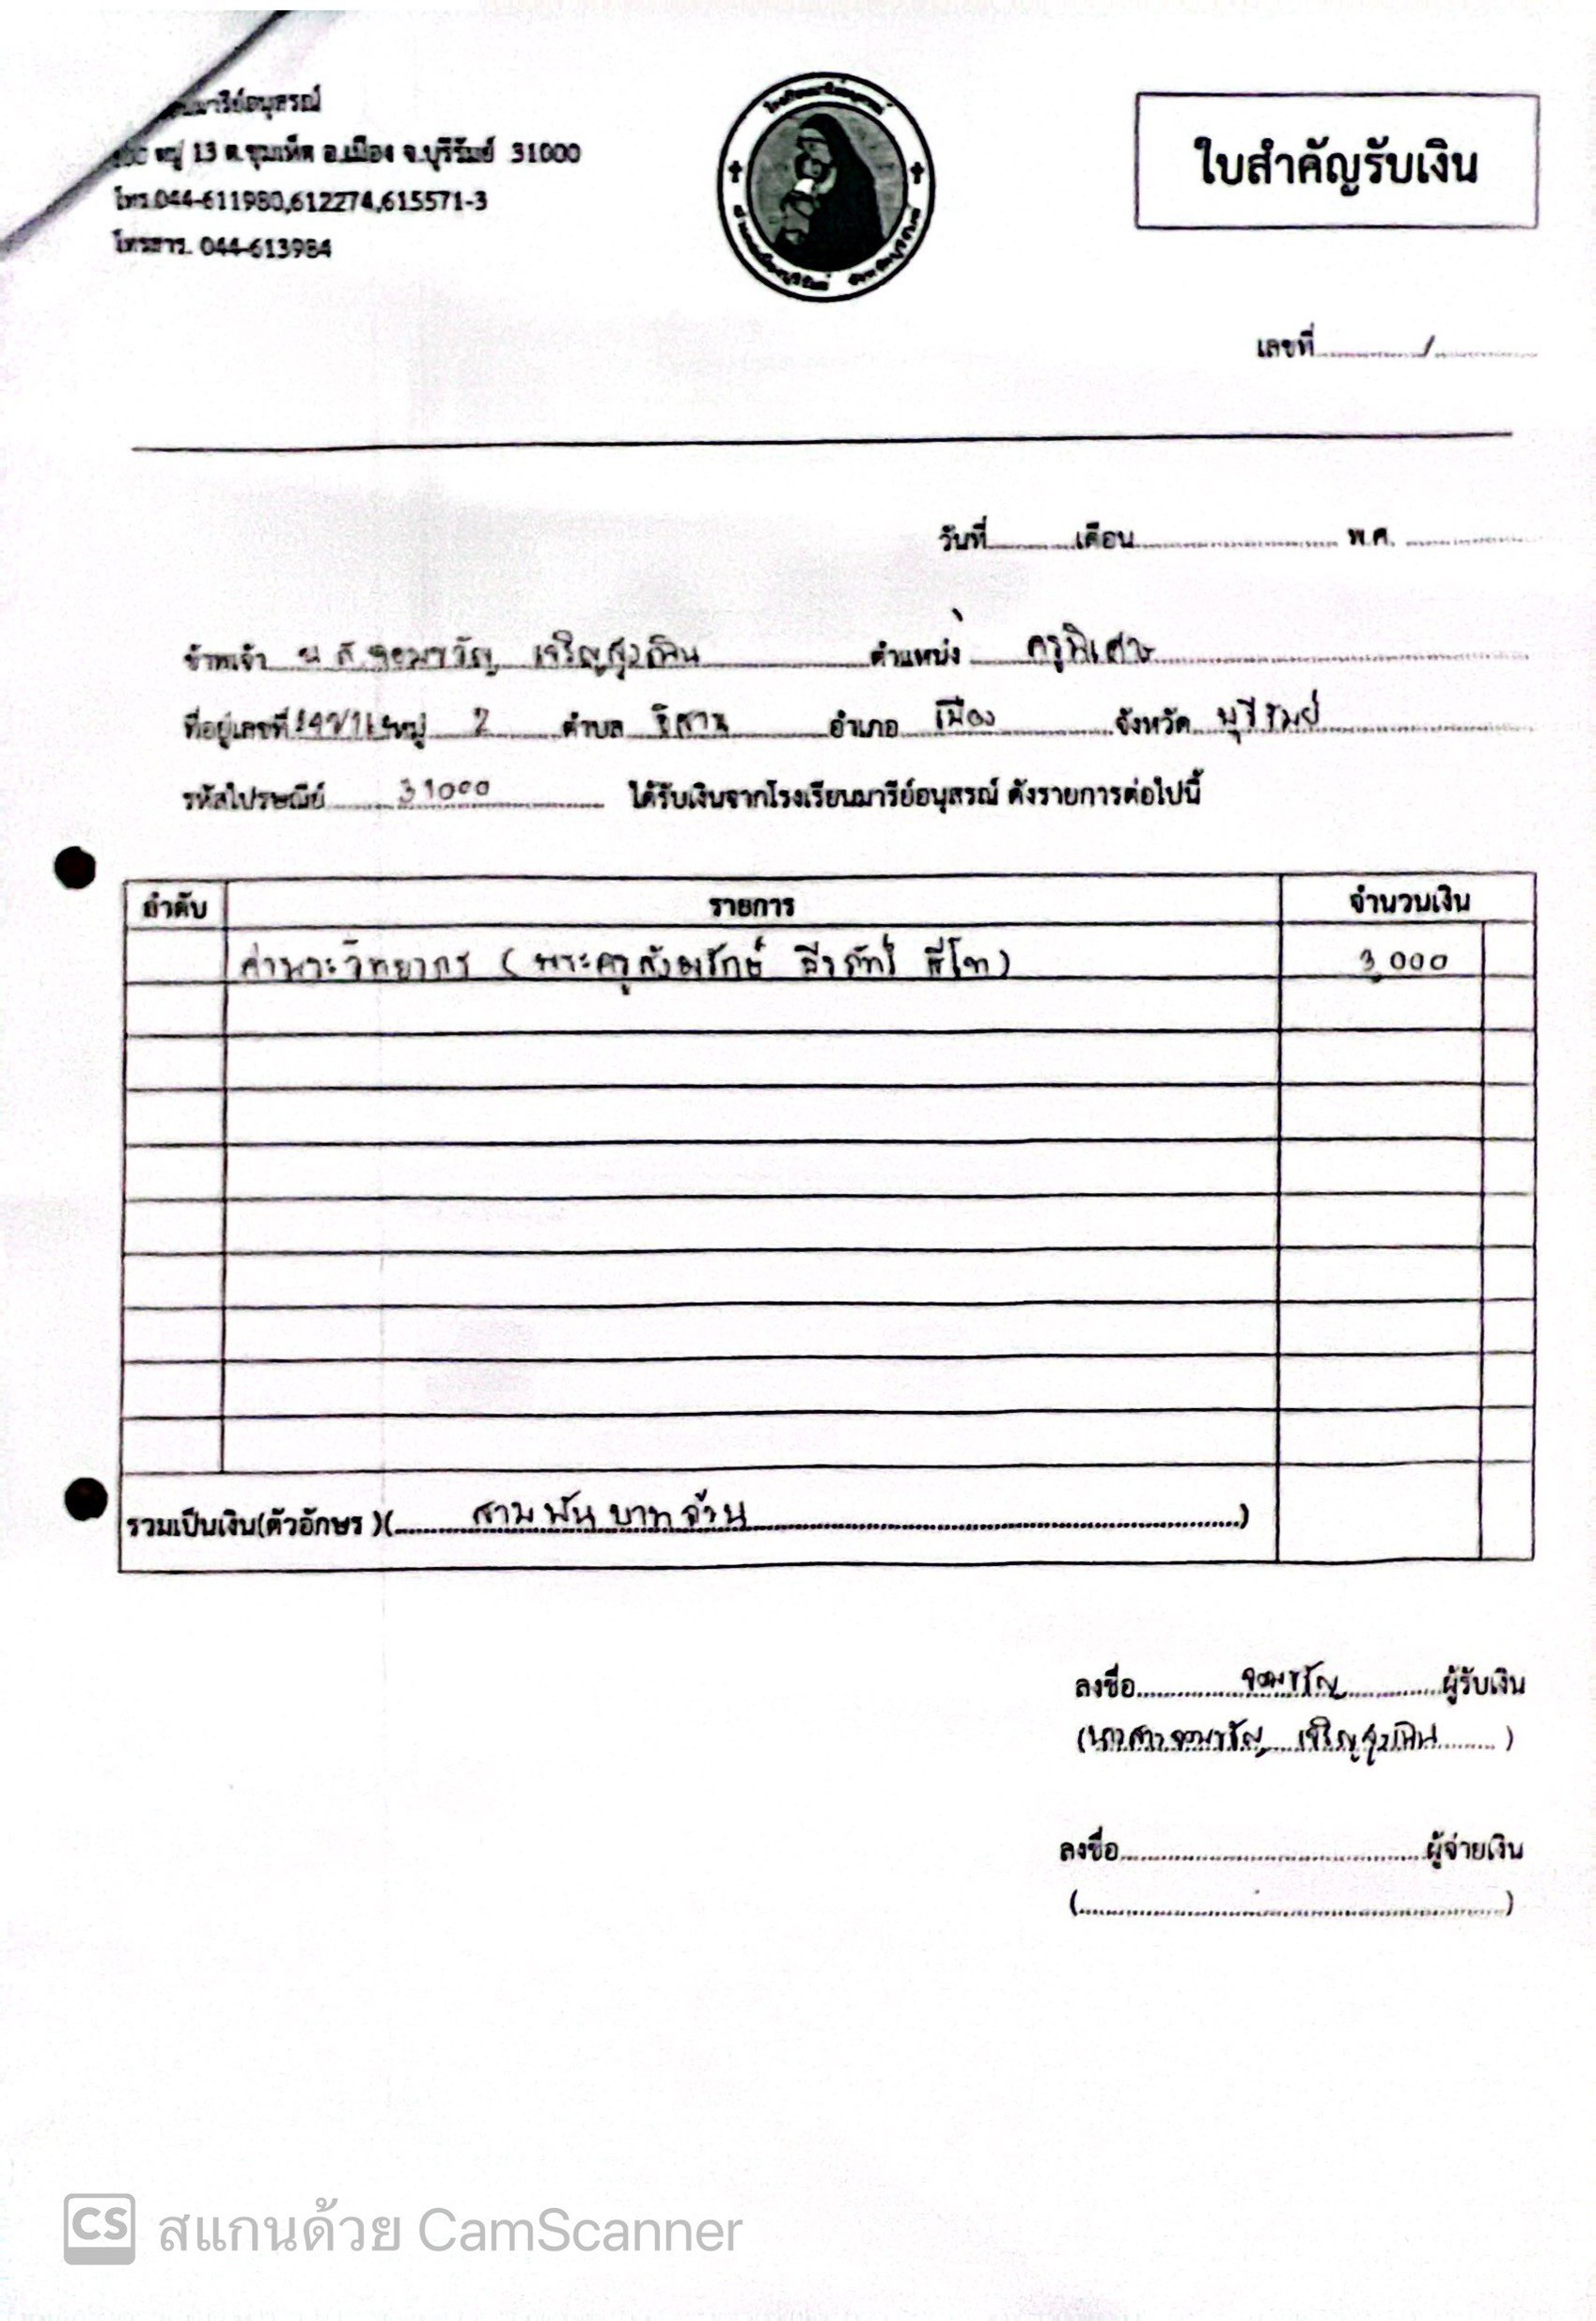 มารีย์อนุสรณ์
หมู่ 13 ต.ชุมเห็ด อ.เมือง จ.บุรีรัมย์ 31000
โทร.044-611980,612274,615571-3
โทรสาร. 044-613984
ใบสำคัญรับเงิน
เลขที่............/............
วันที่............เดือน............ พ.ศ. ............
ข้าพเจ้า น.ส.จอมขวัญ เจริญสุขเงิน ตำแหน่ง ครูพิเศษ
ที่อยู่เลขที่ หมู่ 2 ตำบล อิสาณ อำเภอ เมือง จังหวัด บุรีรัมย์
รหัสไปรษณีย์ 31000 ได้รับเงินจากโรงเรียนมารีย์อนุสรณ์ ดังรายการต่อไปนี้
ลำดับ รายการ จำนวนเงิน
ค่าพระวิทยากร (พระครูสังฆรักษ์ สีโท) 3,000
รวมเป็นเงิน(ตัวอักษร)(....สามพันบาทถ้วน....)
ลงชื่อ....จอมขวัญ....ผู้รับเงิน
(นางสาวจอมขวัญ เจริญสุขเงิน)
ลงชื่อ............ผู้จ่ายเงิน
(............)
CS สแกนด้วย CamScanner